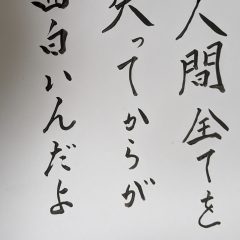 人間全てを
失ってからが
面白いんだよ